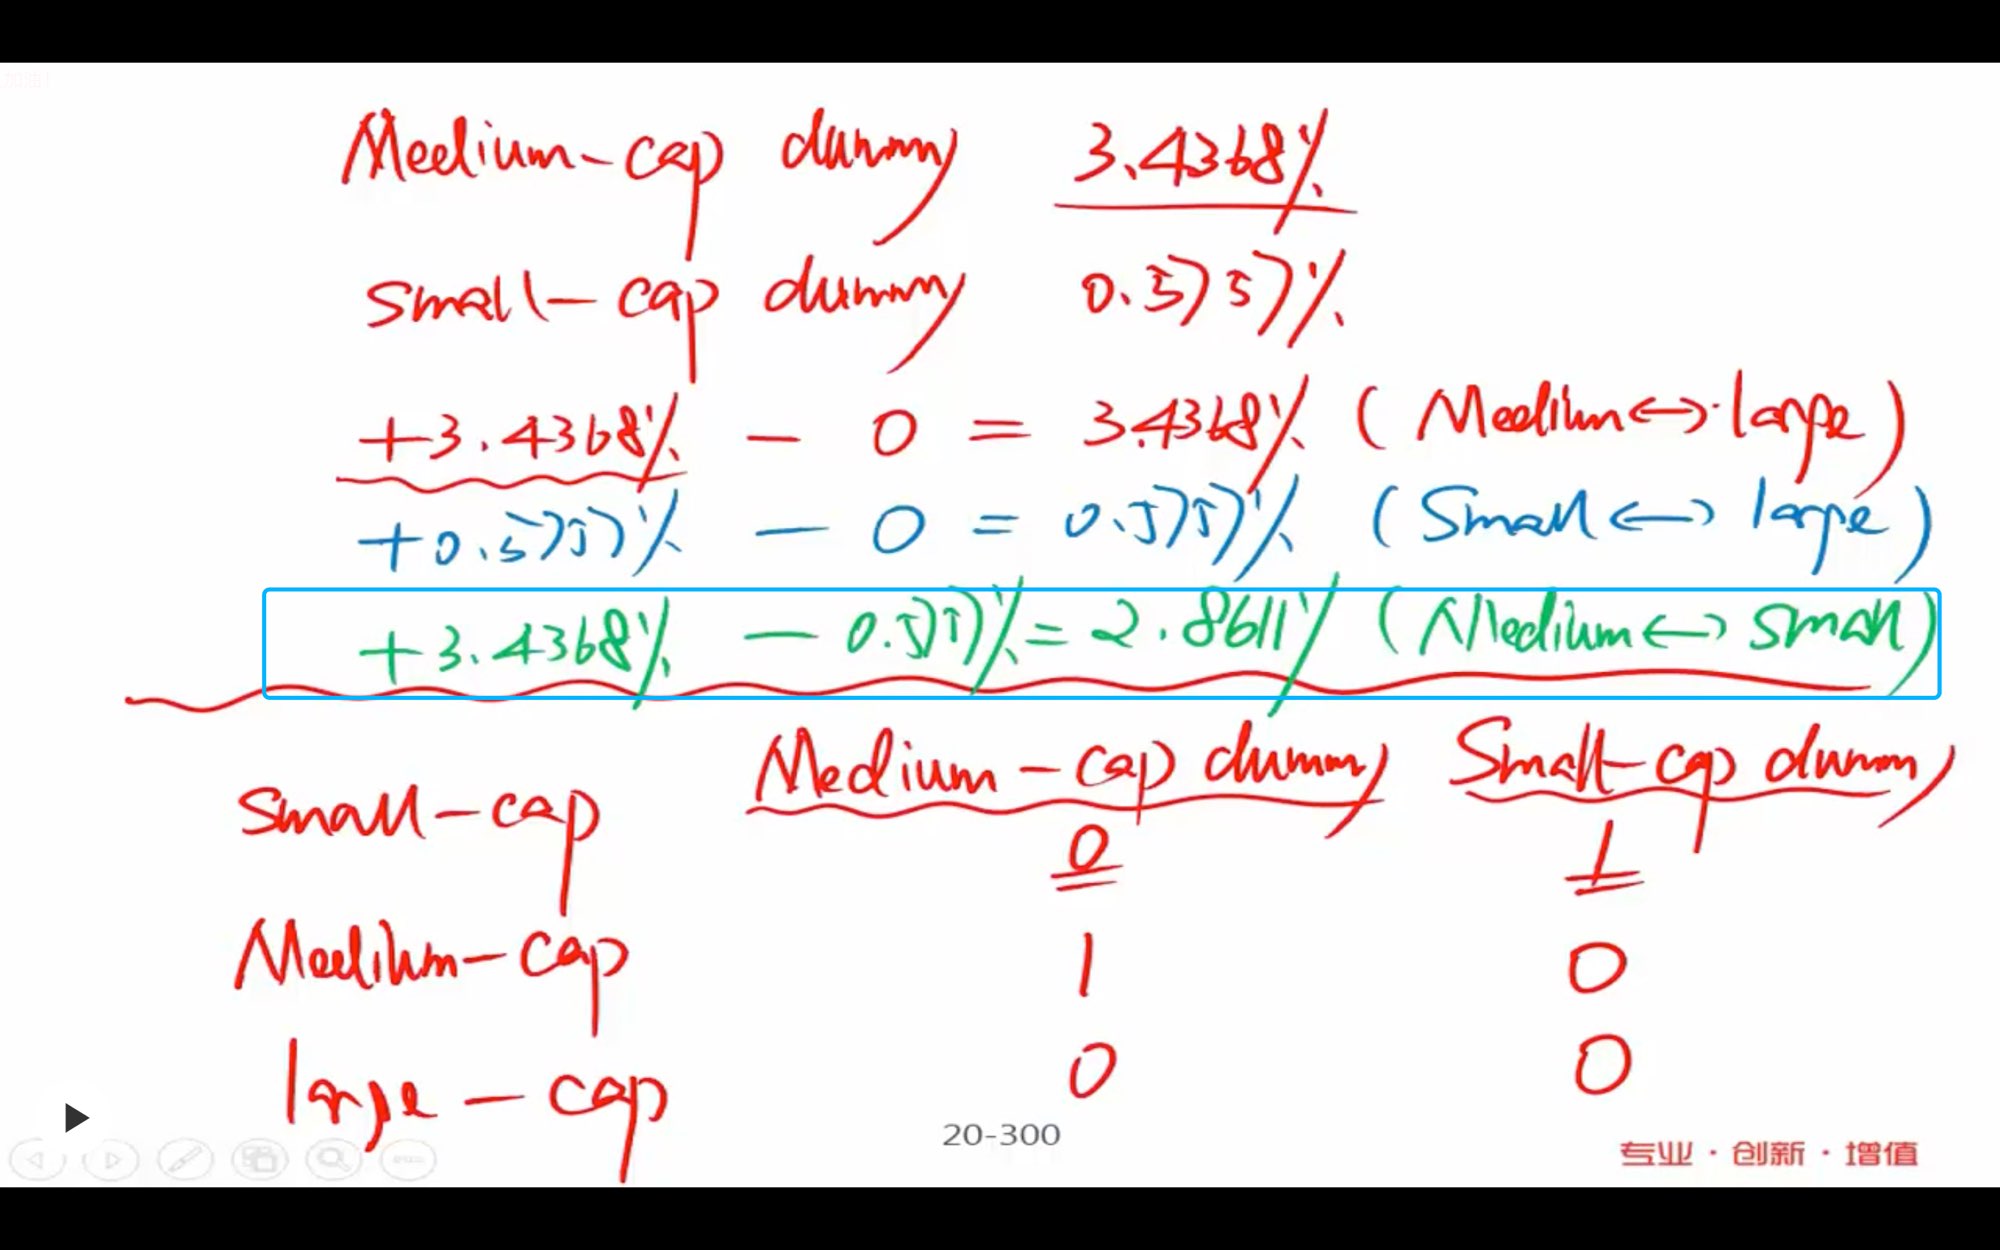 Medium-cap dummy 3.4368%
small-cap dummy 0.5757%
+3.4368% - 0 = 3.4368% (Medium<->large)
+0.5757% - 0 = 0.5757% (Small<->large)
+3.4368% - 0.5757% = 2.8611% (Medium<->small)
Medium-cap dummy Small-cap dummy
small-cap 0 1
Medium-cap 1 0
large-cap 0 0
20-300
专业·创新·增值